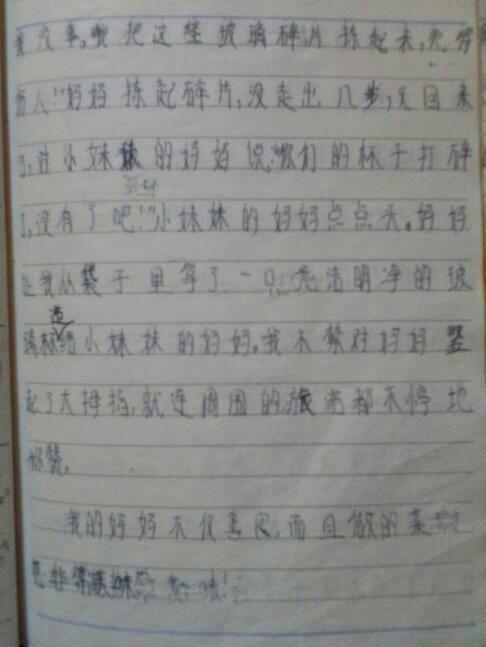 没事,要把这些玻璃碎片拣起来,免得
伤人!"妈妈拣起碎片,没走出几步,又回来
了,对小妹妹的妈妈说:"你们的杯子打碎
了,没有了吧!"小妹妹的妈妈点点头。妈妈
让我从袋子里拿了一只光洁明净的玻
璃杯给小妹妹的妈妈。我不禁对妈妈竖
起了大拇指,就连周围的旅客都不停地
称赞。
我的妈妈不仅善良,而且做的菜
也非常美味!